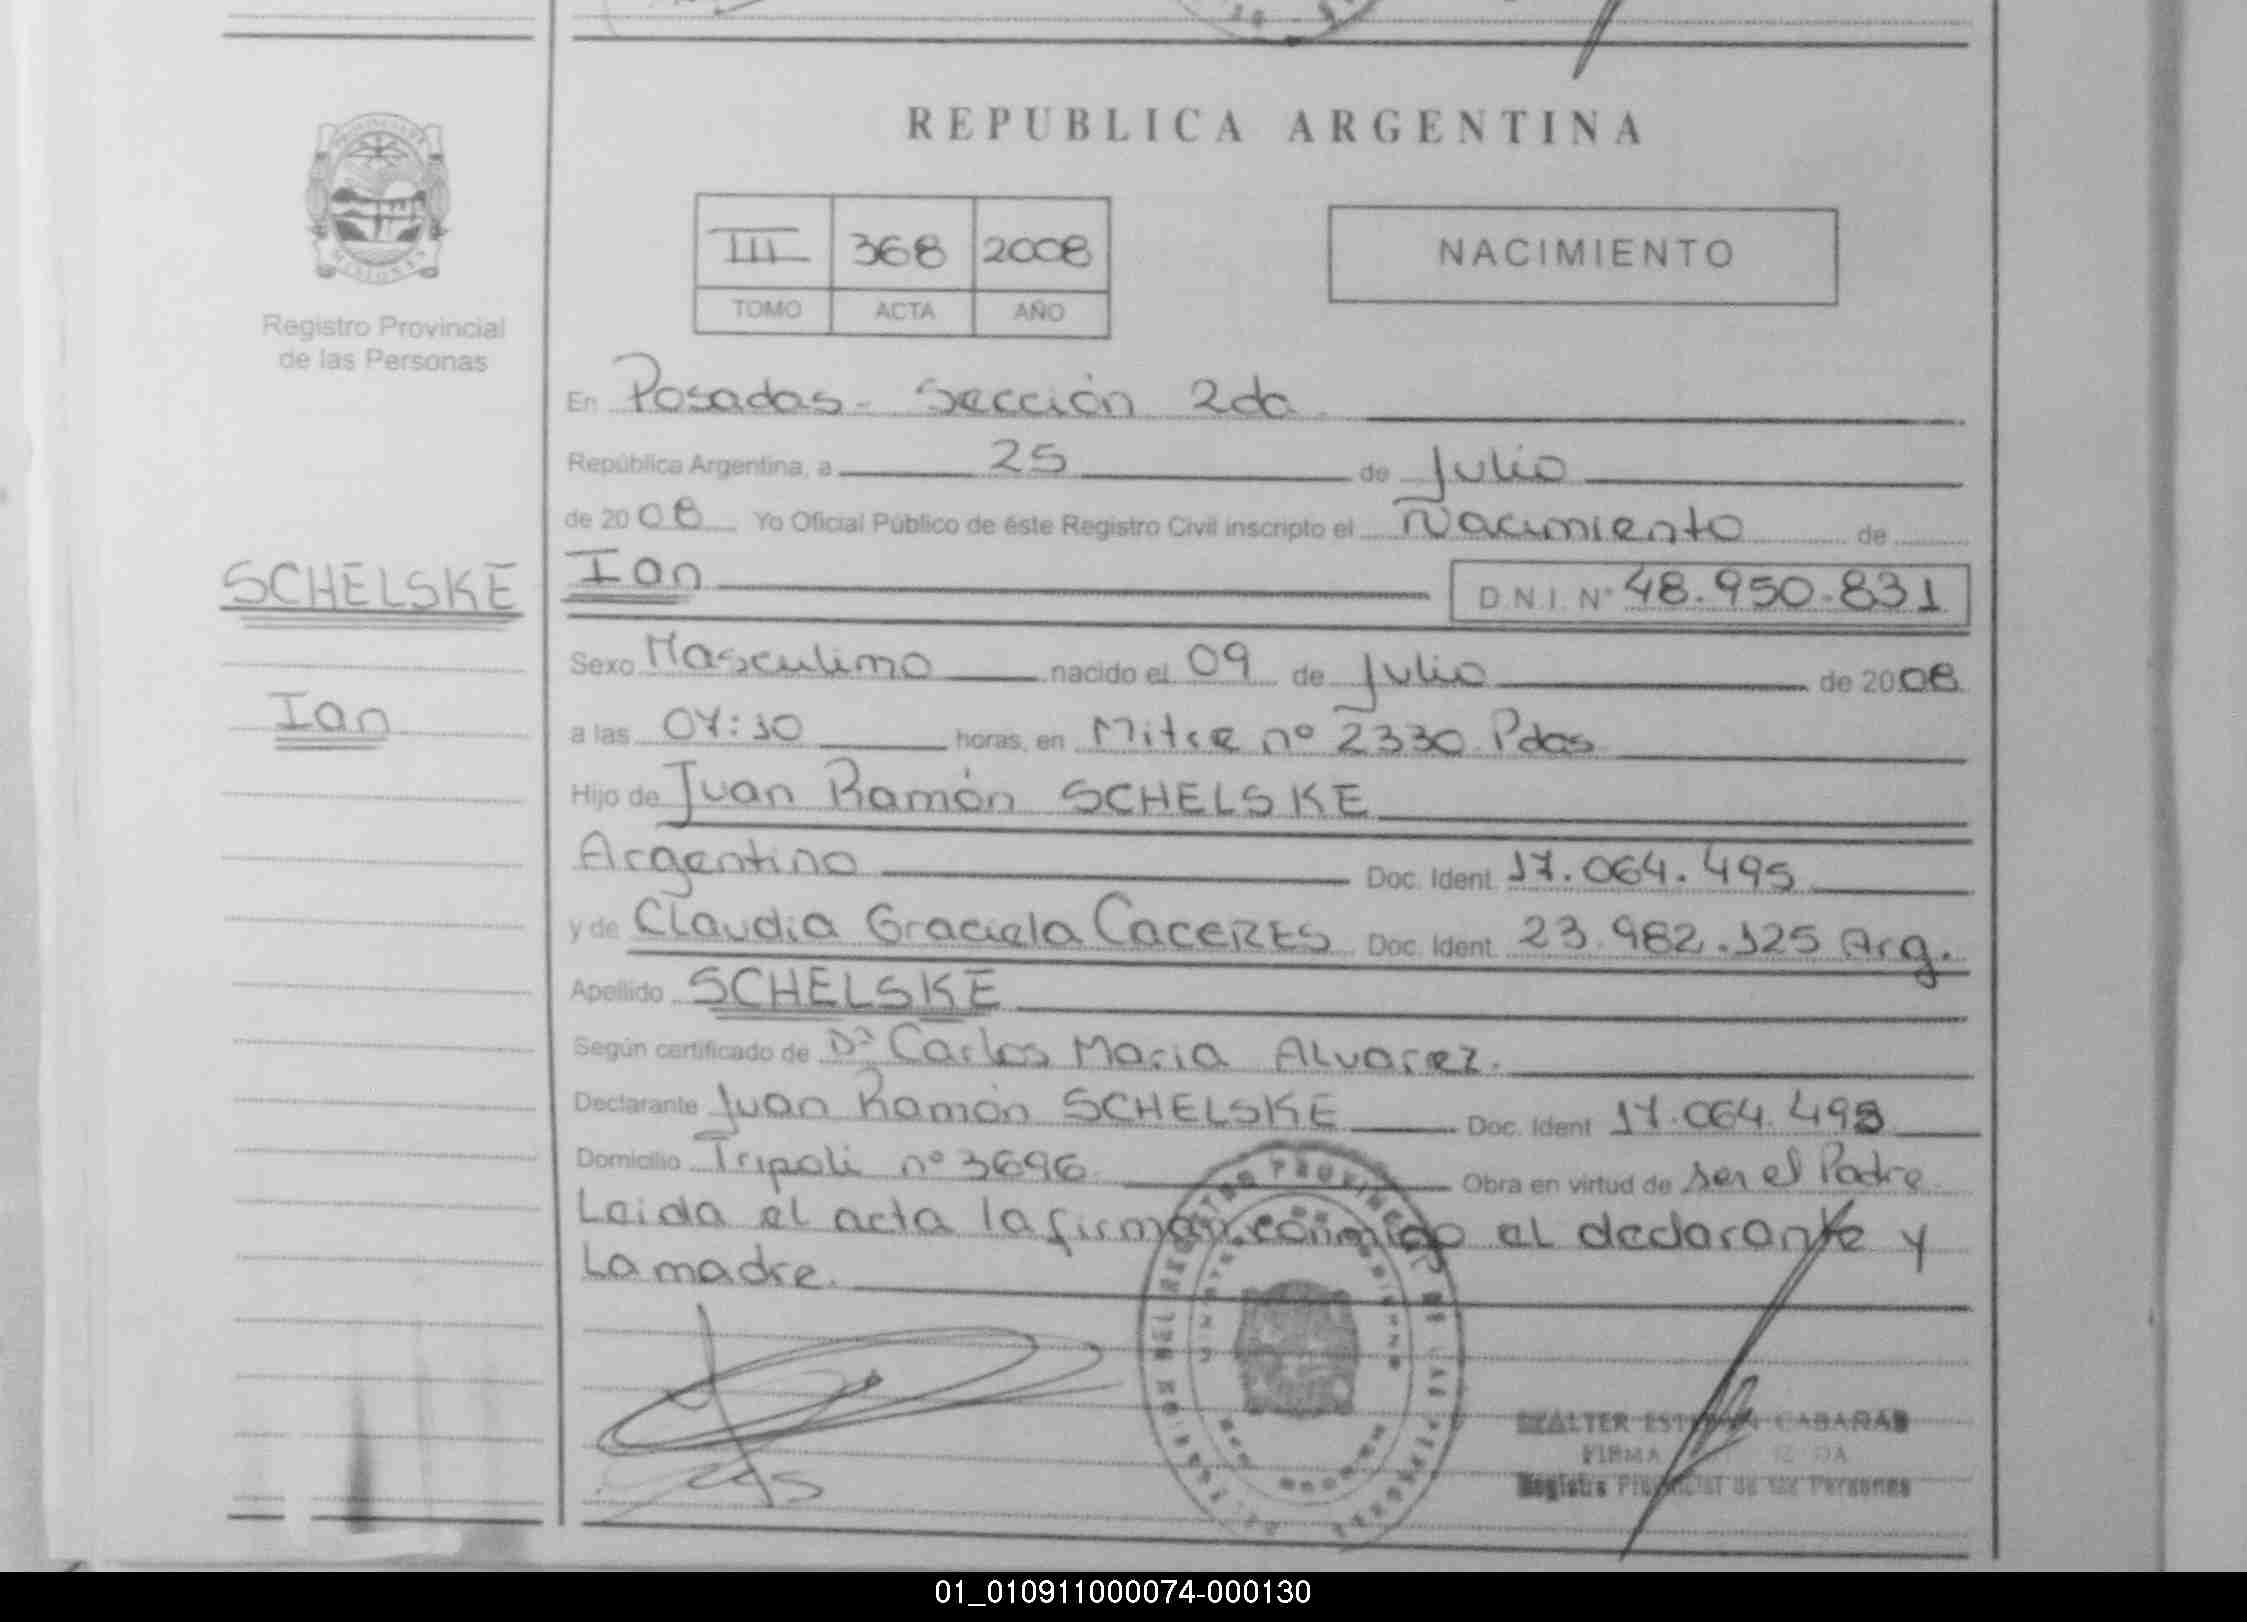 REPUBLICA ARGENTINA
III 368 2008
TOMO ACTA AÑO
NACIMIENTO
MISIONES
Registro Provincial
de las Personas
SCHELSKE
Ian
En Posadas - Sección 2da.
República Argentina, a 25 de Julio
de 2008 Yo Oficial Público de éste Registro Civil inscripto el Nacimiento de
Ian D.N.I. Nº 48.950.831
Sexo Masculino nacido el 09 de Julio de 2008
a las 07:10 horas, en Mitre nº 2330 Pdas
Hijo de Juan Ramón SCHELSKE
Argentino Doc. Ident. 17.064.495
y de Claudia Graciela CACERES Doc. Ident. 23.982.125 Arg.
Apellido SCHELSKE
Según certificado de Dr Carlos Maria Alvarez.
Declarante Juan Ramón SCHELSKE Doc. Ident 17.064.495
Domicilio Tripoli nº 3696 Obra en virtud de ser el Padre
Leida el acta la firman conmigo el declarante y
La madre.
CABAÑAS
FIRMA
Registro Provincial de las Personas
01_010911000074-000130